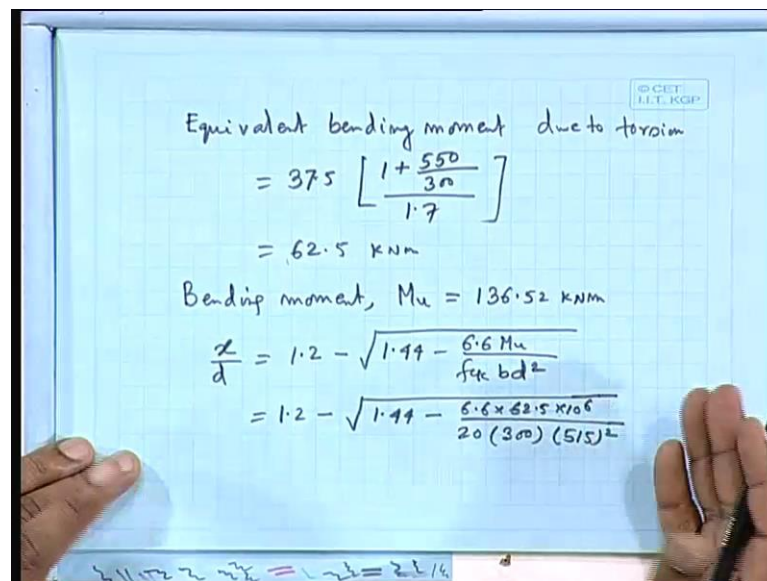 © CET
I.I.T. KGP
Equivalent bending moment due to torsion
= 37.5 [ (1 + 550/300) / 1.7 ]
= 62.5 KNm
Bending moment, Mu = 136.52 KNm
x/d = 1.2 - √(1.44 - 6.6 Mu / fck bd²)
= 1.2 - √(1.44 - 6.6 x 62.5 x 10⁶ / 20 (300) (515)²)